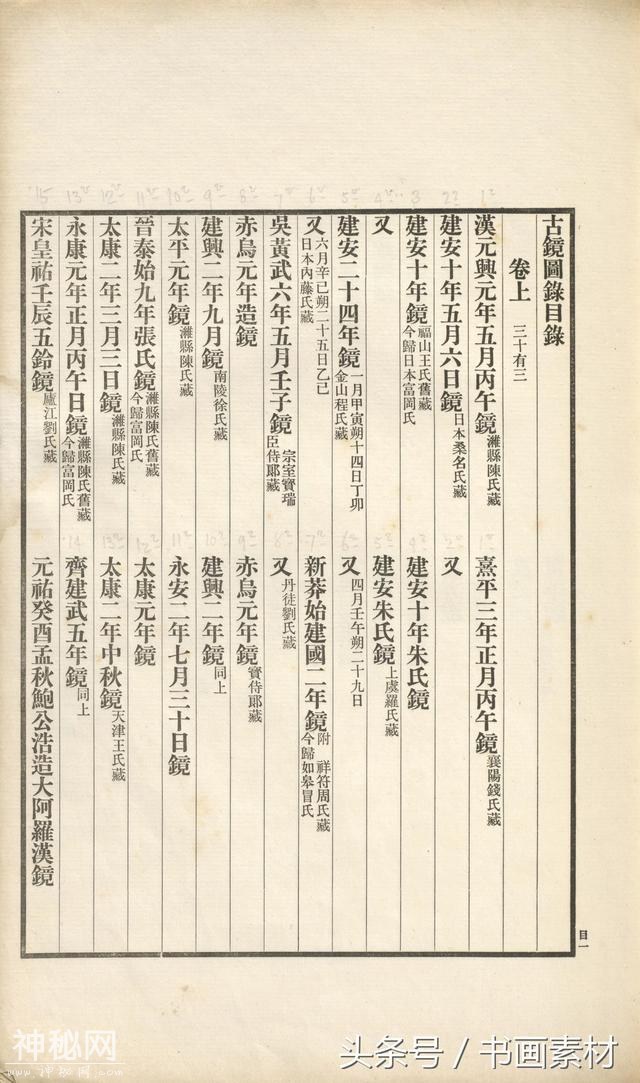 古鏡圖錄目錄
卷上 三十有三
漢元興元年五月丙午鏡 濰縣陳氏藏
熹平三年正月丙午鏡 襄陽錢氏藏
建安十年五月六日鏡 日本桑名氏藏
又
建安十年鏡 福山王氏舊藏今歸日本富岡氏
建安十年朱氏鏡
又
建安朱氏鏡 上虞羅氏藏
建安二十四年鏡 一月甲寅朔十四日丁卯金山程氏藏
又 四月壬午朔二十九日
又 六月辛已朔二十五日乙已日本內藤氏藏
新莽始建國二年鏡 附 祥符周氏藏今歸如皋冒氏
吳黃武六年五月壬子鏡 宗室寶瑞臣侍郎藏
又 丹徒劉氏藏
赤烏元年造鏡
赤烏元年鏡 寶侍郎藏
建興二年九月鏡 南陵徐氏藏
建興二年鏡 同上
太平元年鏡 濰縣陳氏藏
永安二年七月三十日鏡
晉泰始九年張氏鏡 濰縣陳氏舊藏今歸富岡氏
太康元年鏡
太康二年三月三日鏡 濰縣陳氏藏
太康二年中秋鏡 天津王氏藏
永康元年正月丙午日鏡 濰縣陳氏舊藏今歸富岡氏
齊建武五年鏡 同上
宋皇祐壬辰五鈴鏡 廬江劉氏藏
元祐癸酉孟秋鮑公浩造大阿羅漢鏡
目一
神秘网
头条号 / 书画素材